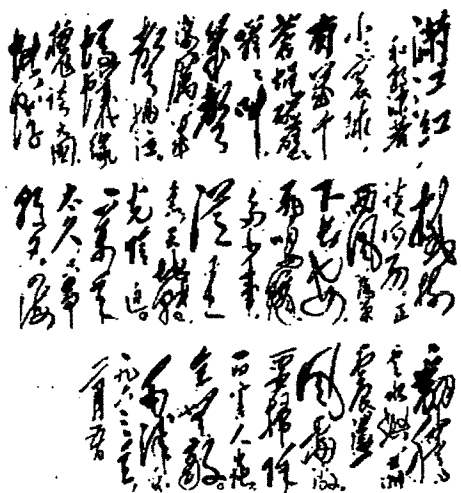 满江红
和郭沫若
小小寰球,
有幾个
蒼蠅碰壁。
嗡嗡叫,
幾聲
凄厲,幾
聲抽泣。
螞蟻緣
槐誇大國,
蚍蜉
撼樹
談何易。正
西風落葉
下長安,
飛鳴鏑。
多少事,
從來
急。天地轉,
光陰迫。
一萬年
太久,只争
朝夕。四海
翻騰
雲水怒,五洲
震蕩
風雷激。
要掃除
一切害人蟲,
全無敵。
毛澤東
一九六三年